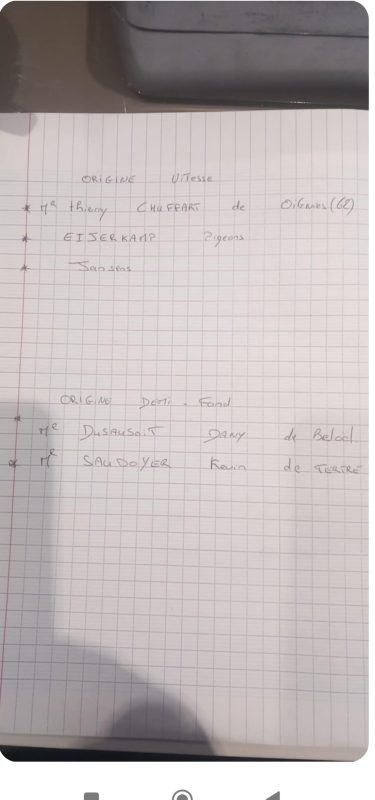 ORIGINE Vitesse
* Mr thierry CHUFFART de Oignies (62)
* EIJERKAMP Pigeons
* Jansens
ORIGINE Demi-Fond
* Mr DUSAUSOIT DANY de Beloeil
* Mr SAUDOYER Kevin de TERTRE